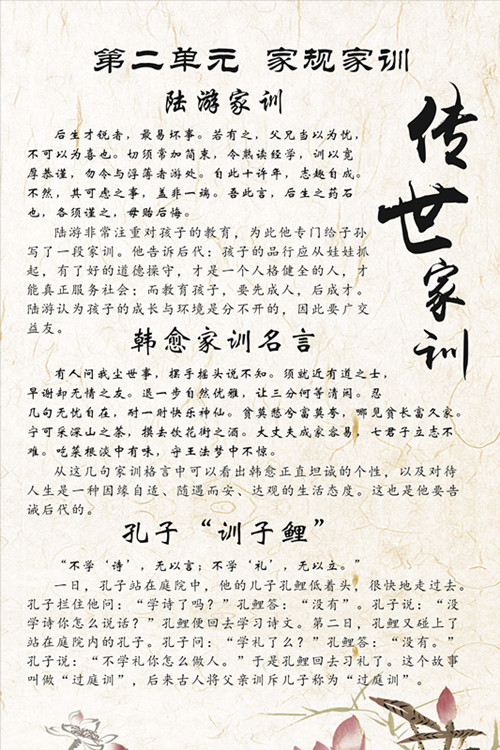 第二单元 家规家训
传世家训
陆游家训
后生才锐者，最易坏事。若有之，父兄当以为忧，
不可以为喜也。切须常加简束，令熟读经学，训以宽
厚恭谨，勿令与浮薄者游处。自此十许年，志趣自成。
不然，其可虑之事，盖非一端。吾此言，后生之药石
也，各须谨之，毋贻后悔。
陆游非常注重对孩子的教育，为此他专门给子孙
写了一段家训。他告诉后代：孩子的品行应从娃娃抓
起，有了好的道德操守，才是一个人格健全的人，才
能真正服务社会；而教育孩子，要先成人，后成才。
陆游认为孩子的成长与环境是分不开的，因此要广交
益友。
韩愈家训名言
有人问我尘世事，摆手摇头说不知。须就近有道之士，
早谢却无情之友。退一步自然优雅，让三分何等清闲。忍
几句无忧自在，耐一时快乐神仙。贫莫愁兮富莫夸，哪见贫长富久家。
宁可采深山之茶，莫去饮花街之酒。大丈夫成家容易，士君子立志不
难。吃菜根淡中有味，守王法梦中不惊。
从这几句家训格言中可以看出韩愈正直坦诚的个性，以及对待
人生是一种因缘自适、随遇而安、达观的生活态度。这也是他要告
诫后代的。
孔子“训子鲤”
“不学‘诗’，无以言；不学‘礼’，无以立。”
一日，孔子站在庭院中，他的儿子孔鲤低着头，很快地走过去。
孔子拦住他问：“学诗了吗？”孔鲤答：“没有”。孔子说：“没
学诗你怎么说话？”孔鲤便回去学习诗文。第二日，孔鲤又碰上了
站在庭院内的孔子。孔子问：“学礼了么？”孔鲤答：“没有。”
孔子说：“不学礼你怎么做人。”于是孔鲤回去习礼了。这个故事
叫做“过庭训”，后来古人将父亲训斥儿子称为“过庭训”。